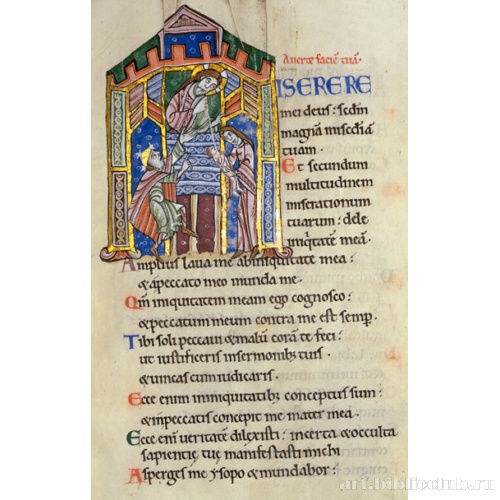 Averte faciē tuā·
MISERERE
mei deus: scd̄m
magnā misc̄diā
tuam·
Et secundum
multitudinem
miserationum
tuarum: dele
iniq̄tatē meā·
Amplius lava me ab iniquitate mea:
& a peccato meo munda me·
Qm̄ iniquitatem meam ego cognosco:
& peccatum meum contra me est semp̄·
Tibi soli peccavi & malū corā te feci:
ut iustificeris in sermonib; tuis·
& vincas cum iudicaris·
Ecce enim iniquitatib; conceptus sum:
& in peccatis concepit me mater mea·
Ecce eni veritatē dilexisti: incerta & occulta
sapientie tue manifestasti michi
Asperges me ysopo & mundabor:
art.biblioclub.ru